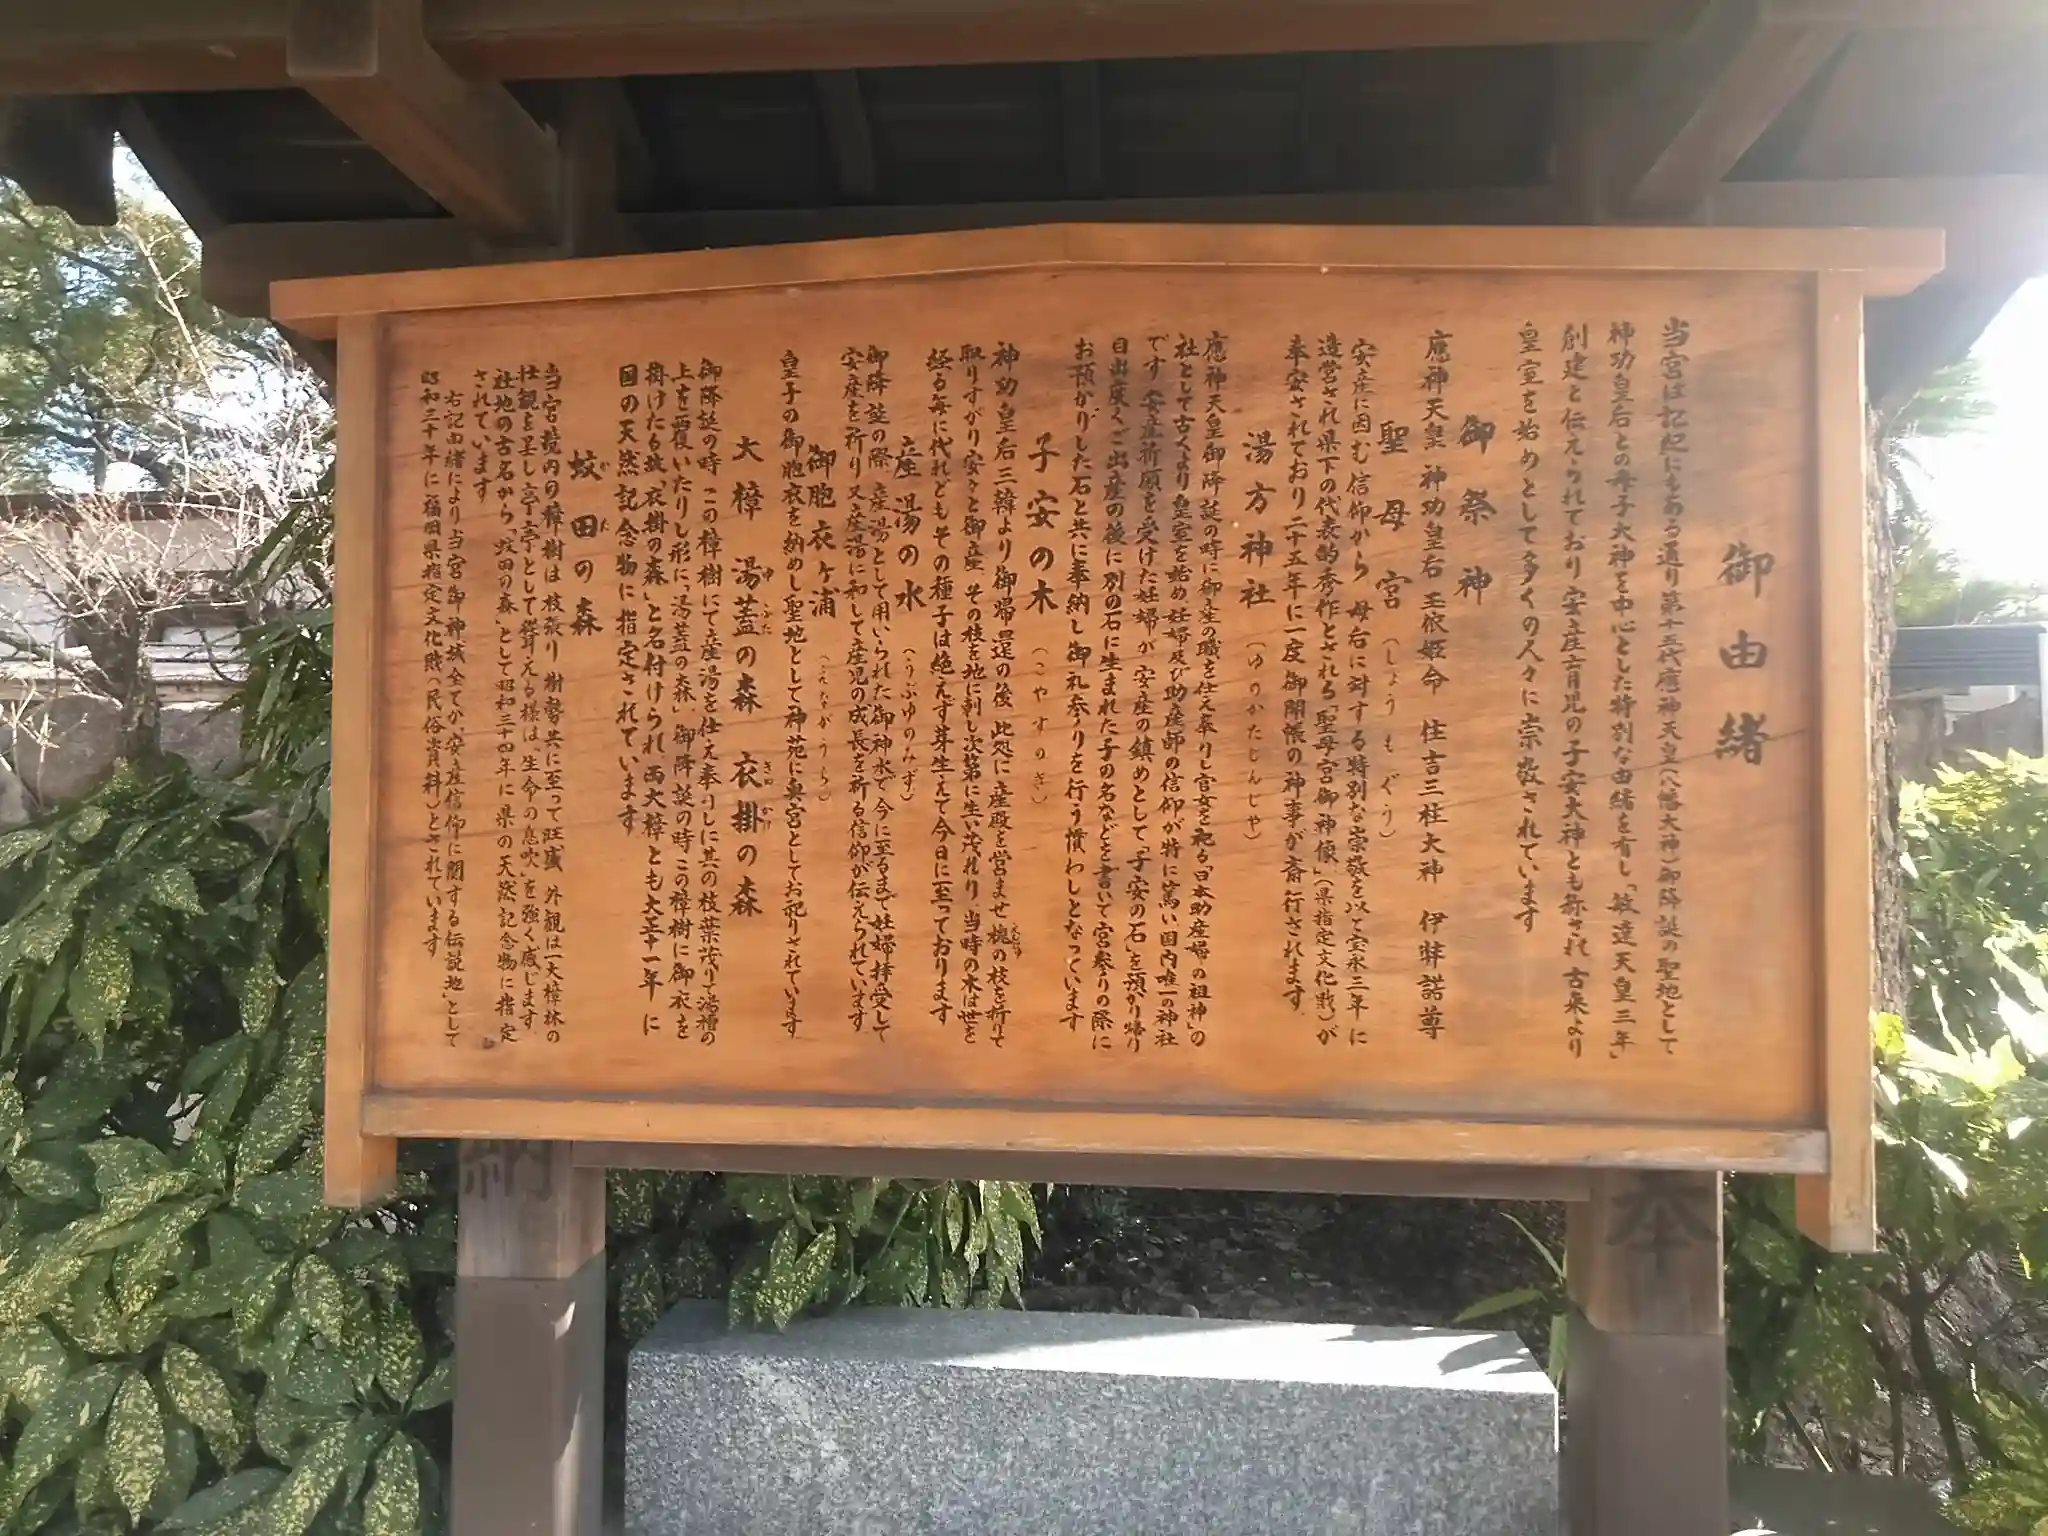 御由緒
当宮は記紀にもある通り第十五代應神天皇(八幡大神)御降誕の聖地として
神功皇后との母子大神を中心とした特別な由緒を有し「敏達天皇三年」
創建と伝えられており安産育児の子安大神とも称され古来より
皇室を始めとして多くの人々に崇敬されています
御祭神
應神天皇 神功皇后 玉依姫命 住吉三柱大神 伊弉諾尊
聖母宮(しょうもぐう)
安産に因む信仰から 母后に対する特別な崇敬を以て宝永三年に
造営され県下の代表的秀作とされる「聖母宮御神像」(県指定文化財)が
奉安されており二十五年に一度御開帳の神事が斎行されます
湯方神社(ゆのかたじんじゃ)
應神天皇御降誕の時に御産の職を仕え奉りし官女を祀る「日本助産婦の祖神」の
社として古くより皇室を始め妊婦及び助産師の信仰が特に篤い国内唯一の神社
です 安産祈願を受けた妊婦が安産の鎮めとして「子安の石」を預かり帰り
目出度くご出産の後に別の石に生まれた子の名などを書いて宮参りの際に
お預かりした石と共に奉納し御礼参りを行う慣わしとなっています
子安の木(こやすのき)
神功皇后三韓より御帰還の後 此処に産殿を営ませ槐の枝を折りて
取りすがり安々と御産 その枝を地に刺し次第に生い茂れり 当時の木は世を
経る毎に代れどもその種子は絶えず芽生えて今日に至っております
産湯の水(うぶゆのみず)
御降誕の際 産湯として用いられた御神水で今に至るまで妊婦拝受して
安産を祈り又産湯に和して産児の成長を祈る信仰が伝えられています
御胞衣ヶ浦(えながうら)
皇子の御胞衣を納めし聖地として神苑に奥宮としてお祀りされています
大樟 湯蓋の森 衣掛の森
ゆ ふた きぬ かけ
御降誕の時 この樟樹にて産湯を仕え奉りしに其の枝葉茂りて湯槽の
上を覆いたりし形に「湯蓋の森」 御降誕の時この樟樹に御衣を
掛けたる故「衣掛の森」と名付けられ、両大樟とも大正十一年に
国の天然記念物に指定されています
蚊田の森
が だ
当宮境内の樟樹は枝張り樹勢共に至って旺盛 外観は一大樟林の
壮観を呈し亭亭として聳える様は、「生命の息吹」を強く感じます
社地の古名から「蚊田の森」として昭和三十四年に県の天然記念物に指定
されています
右記由緒により当宮御神域全てが、「安産信仰に関する伝説地」として
昭和三十年に福岡県指定文化財(民俗資料)とされています
納
奉